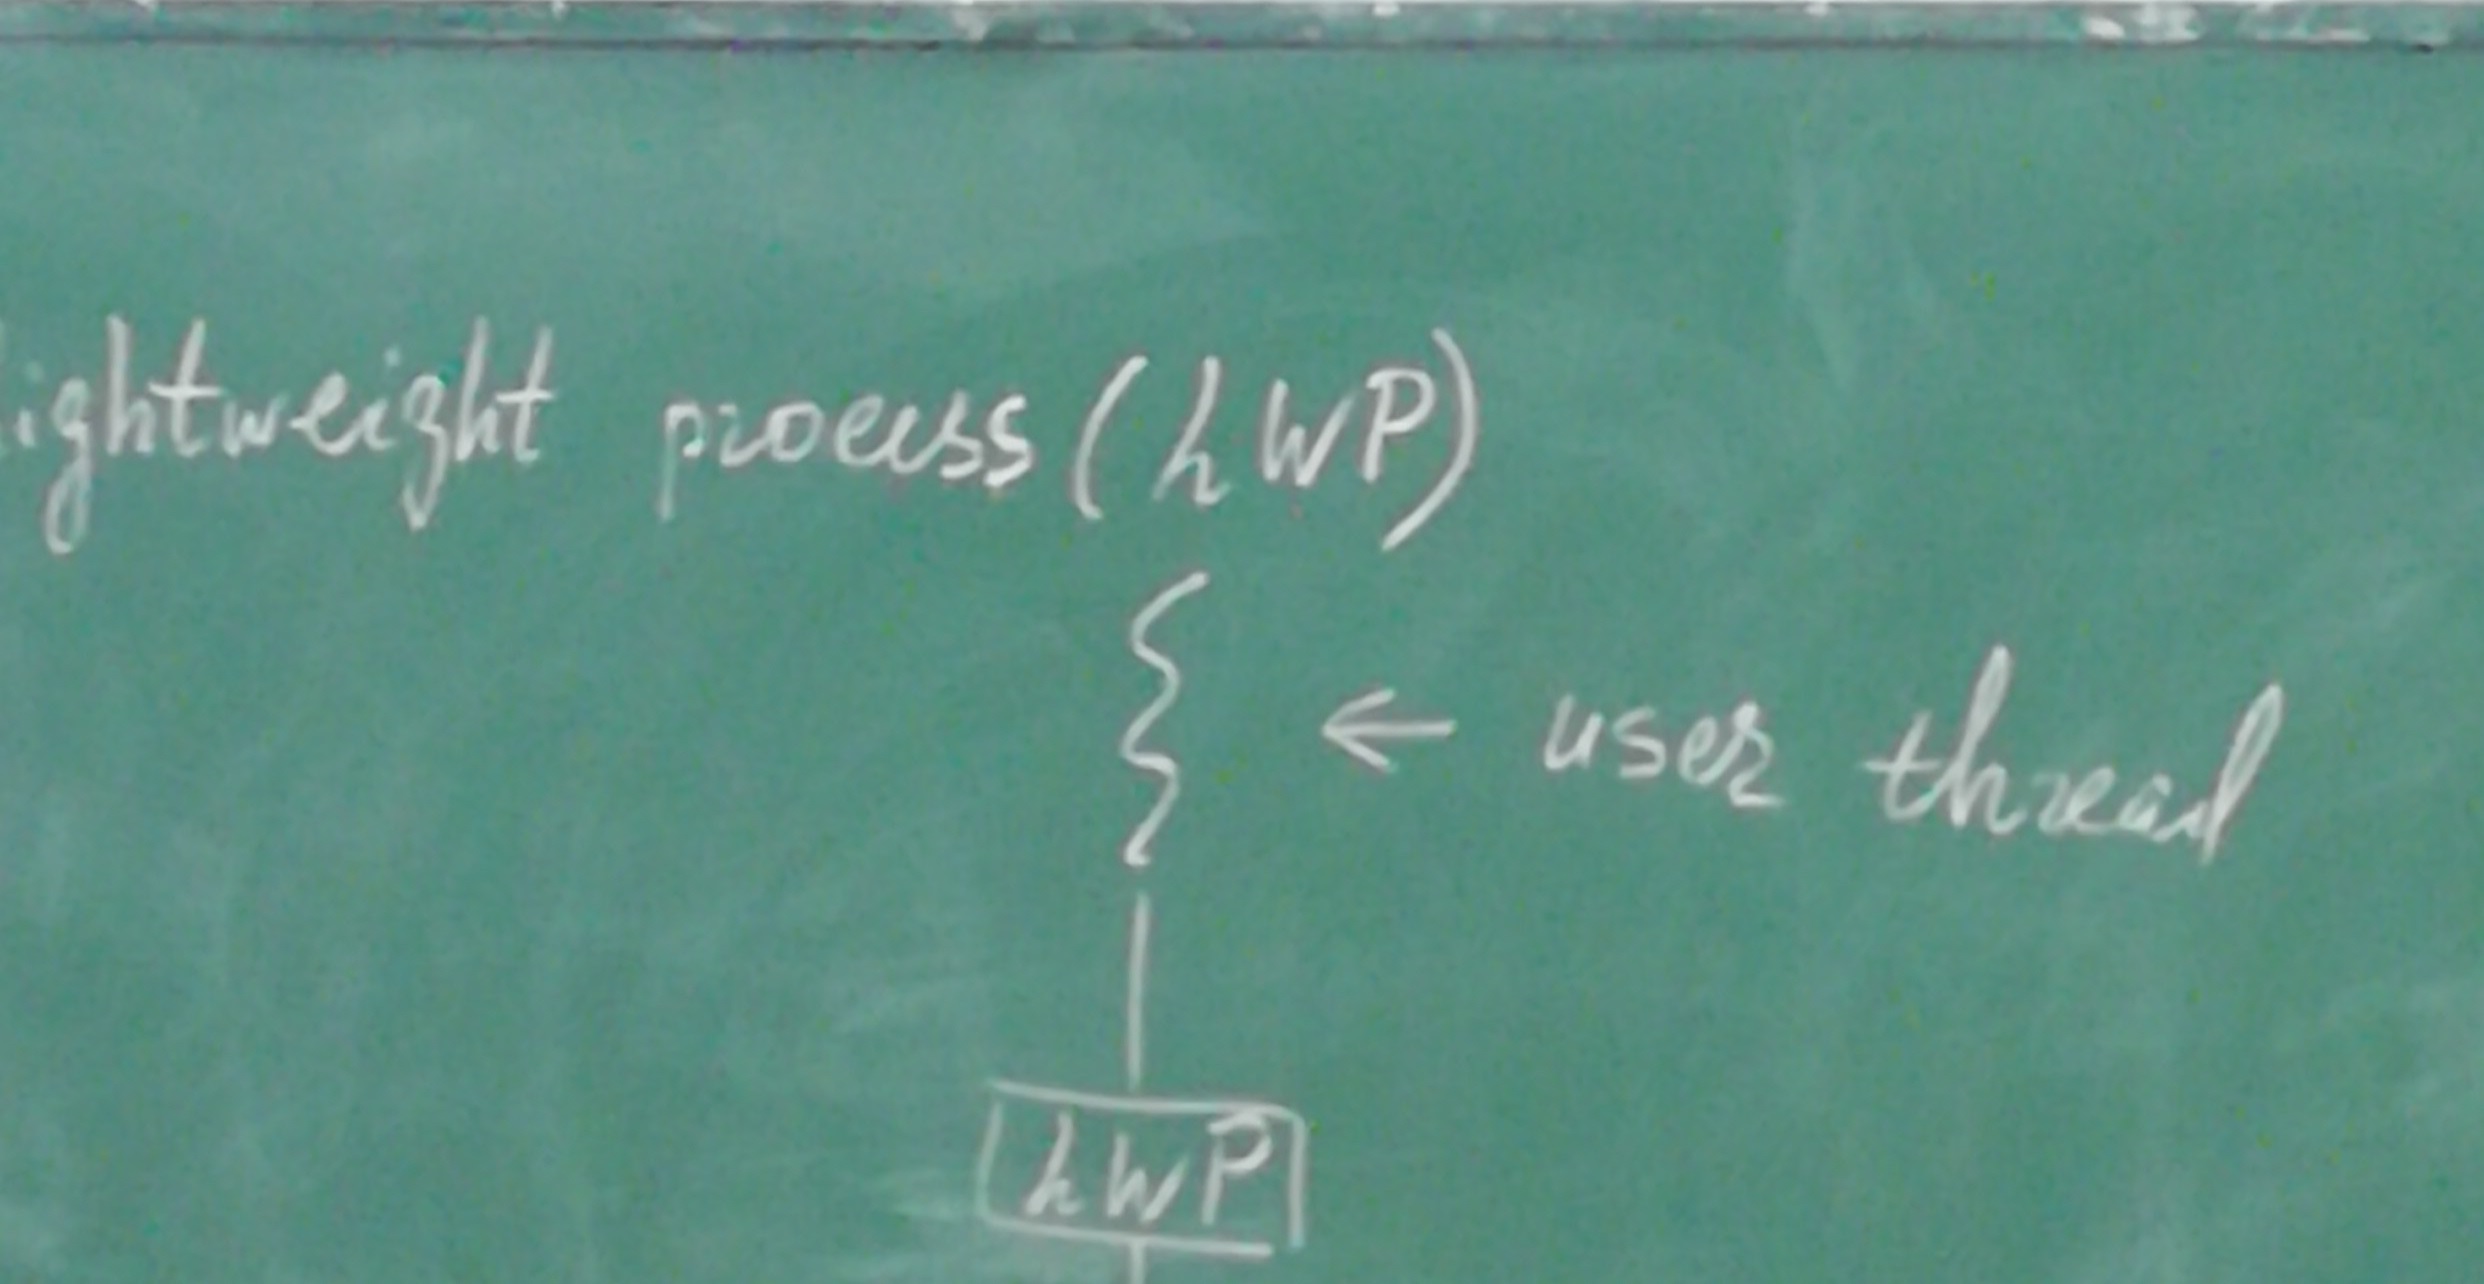 lightweight process (LWP)
← user thread
LWP